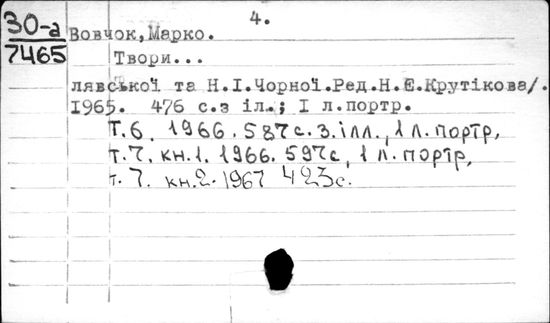 4.
30-а
7465
Вовчок,Марко.
Твори...
лявської та Н.І.Чорної.Ред.Н.Є.Крутікова/.
І965. 476 с.з іл.; І л.портр.
Т.6. 1966. 587с. з.ілл., 1 л. портр,
т.7. кн.1. 1966. 597с, 1 л. портр,
т. 7. кн.2. 1967 423с.